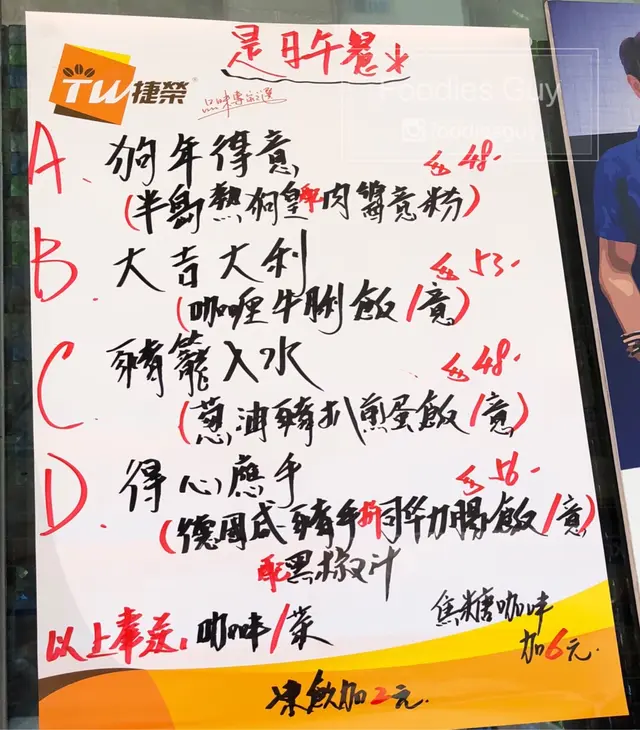 是日午餐
TW捷榮®
品味專家之選
Foodies Guy
foodiesguy
A. 狗年得意 $48.
(半島熱狗皇配肉醬意粉)
B. 大吉大利 $53.
(咖喱牛脷飯/意)
C. 豬籠入水 $48.
(蔥油豬扒煎蛋飯/意)
D. 得心應手 $56.
(德國咸豬手拼同华力腸飯/意)
配黑椒汁
以上奉送: 咖啡/茶
焦糖咖啡
加6元.
凍飲加2元.